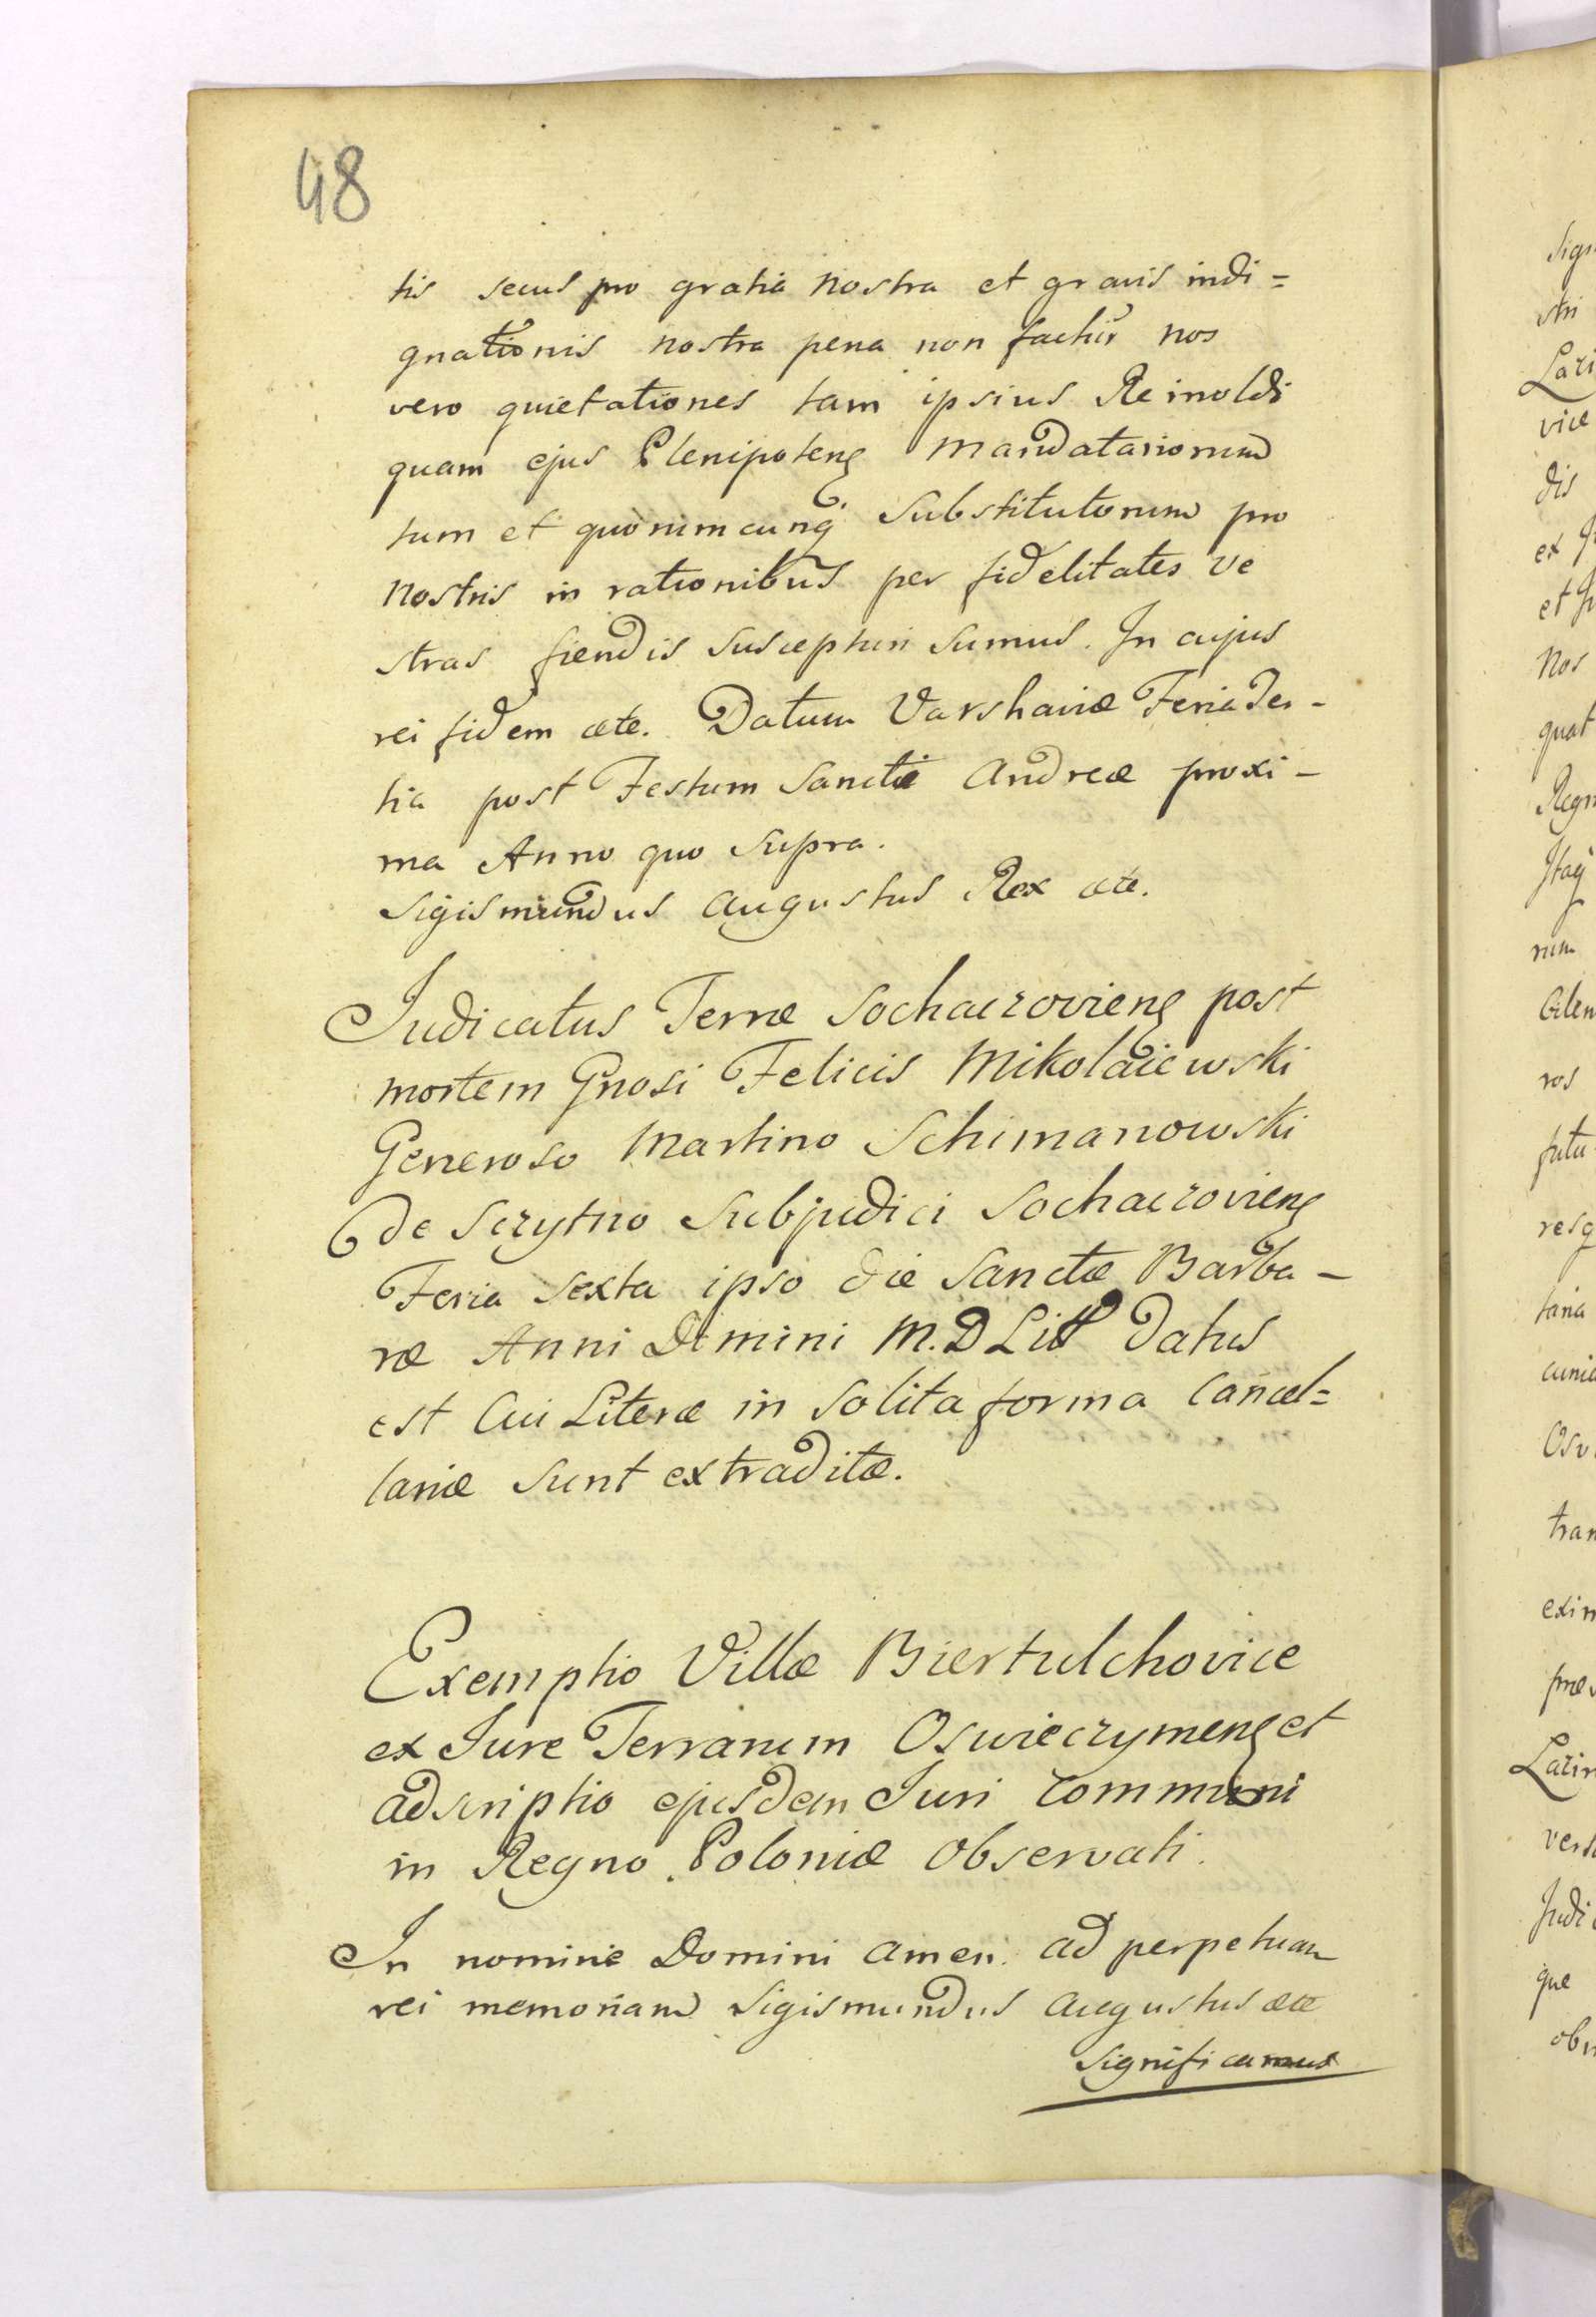 48
tis secus pro gratia nostra et gravis indi=
gnationis nostra pena non factur nos
vero quietationes tam ipsius Reinoldi
quam ejus Plenipotenς Mandatariorum
tum et quorumcunq̃ Substitutorum pro
Nostris in rationibus per fidelitates ve
stras fiendis suscepturi sumus. In cujus
rei fidem ete. Datum Varshaviæ Feria Ter-
tia post Festum Sanctæ Andreæ proxi-
ma Anno quo Supra.
Sigismundus Augustus Rex ete.
Judicatus Terræ Sochaczovienς post
mortem Gnosi Felicis Mikolaiewski
Generoso Martino Schimanowski
de Sczytno Subjudici Sochaczovienς
Feria Sexta ipso die Sanctæ Barba-
ræ Anni Domini M.D Datus
est Cui Literæ in solita forma Cancel=
lariæ sunt extraditæ.
Exemptio Villæ Biertulchovice
ex Jure Terrarum Oswieczymenς et
adscriptio ejusdem Juri Communi
in Regno Poloniæ observati.
In nomine Domini Amen. Ad perpetuam
rei memoriam Sigismundus Augustus ete
Significamus
Sign
stri
Lazi
vice
dis
ex
et
Nos
quat
Regn
Itaq
rum
ros
futu
resq
taria
cunia
Osv
tran
exim
Lazin
vers
Judi
que